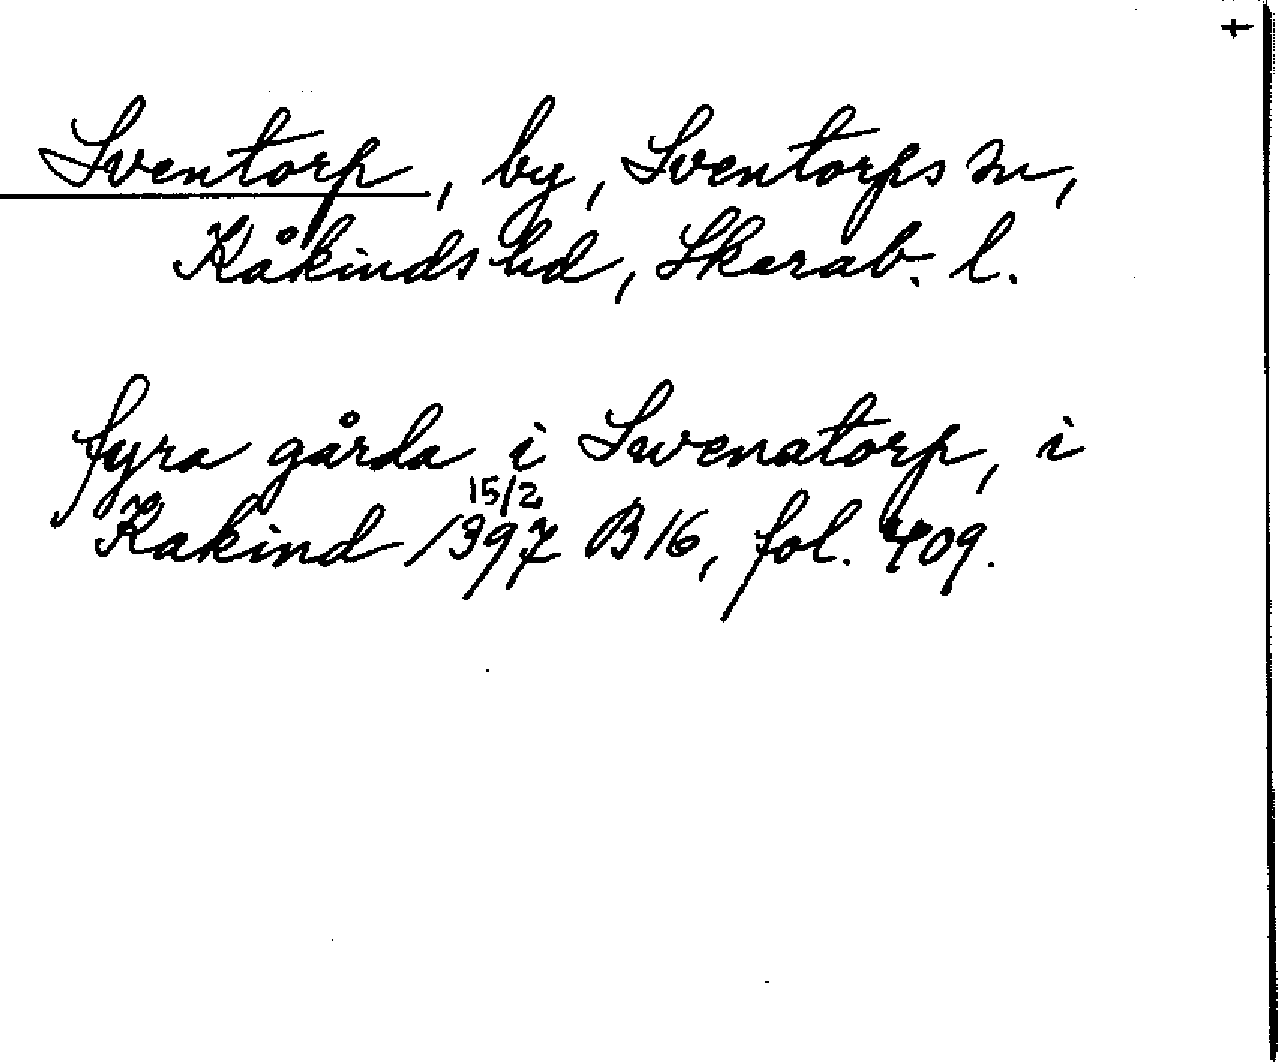 +
Sventorp, by, Sventorps sn,
Kåkinds hd, Skarab. l.
fyra gårda i Swenatorp, i
15/2
Kakind 1397 B 16, fol. 409.